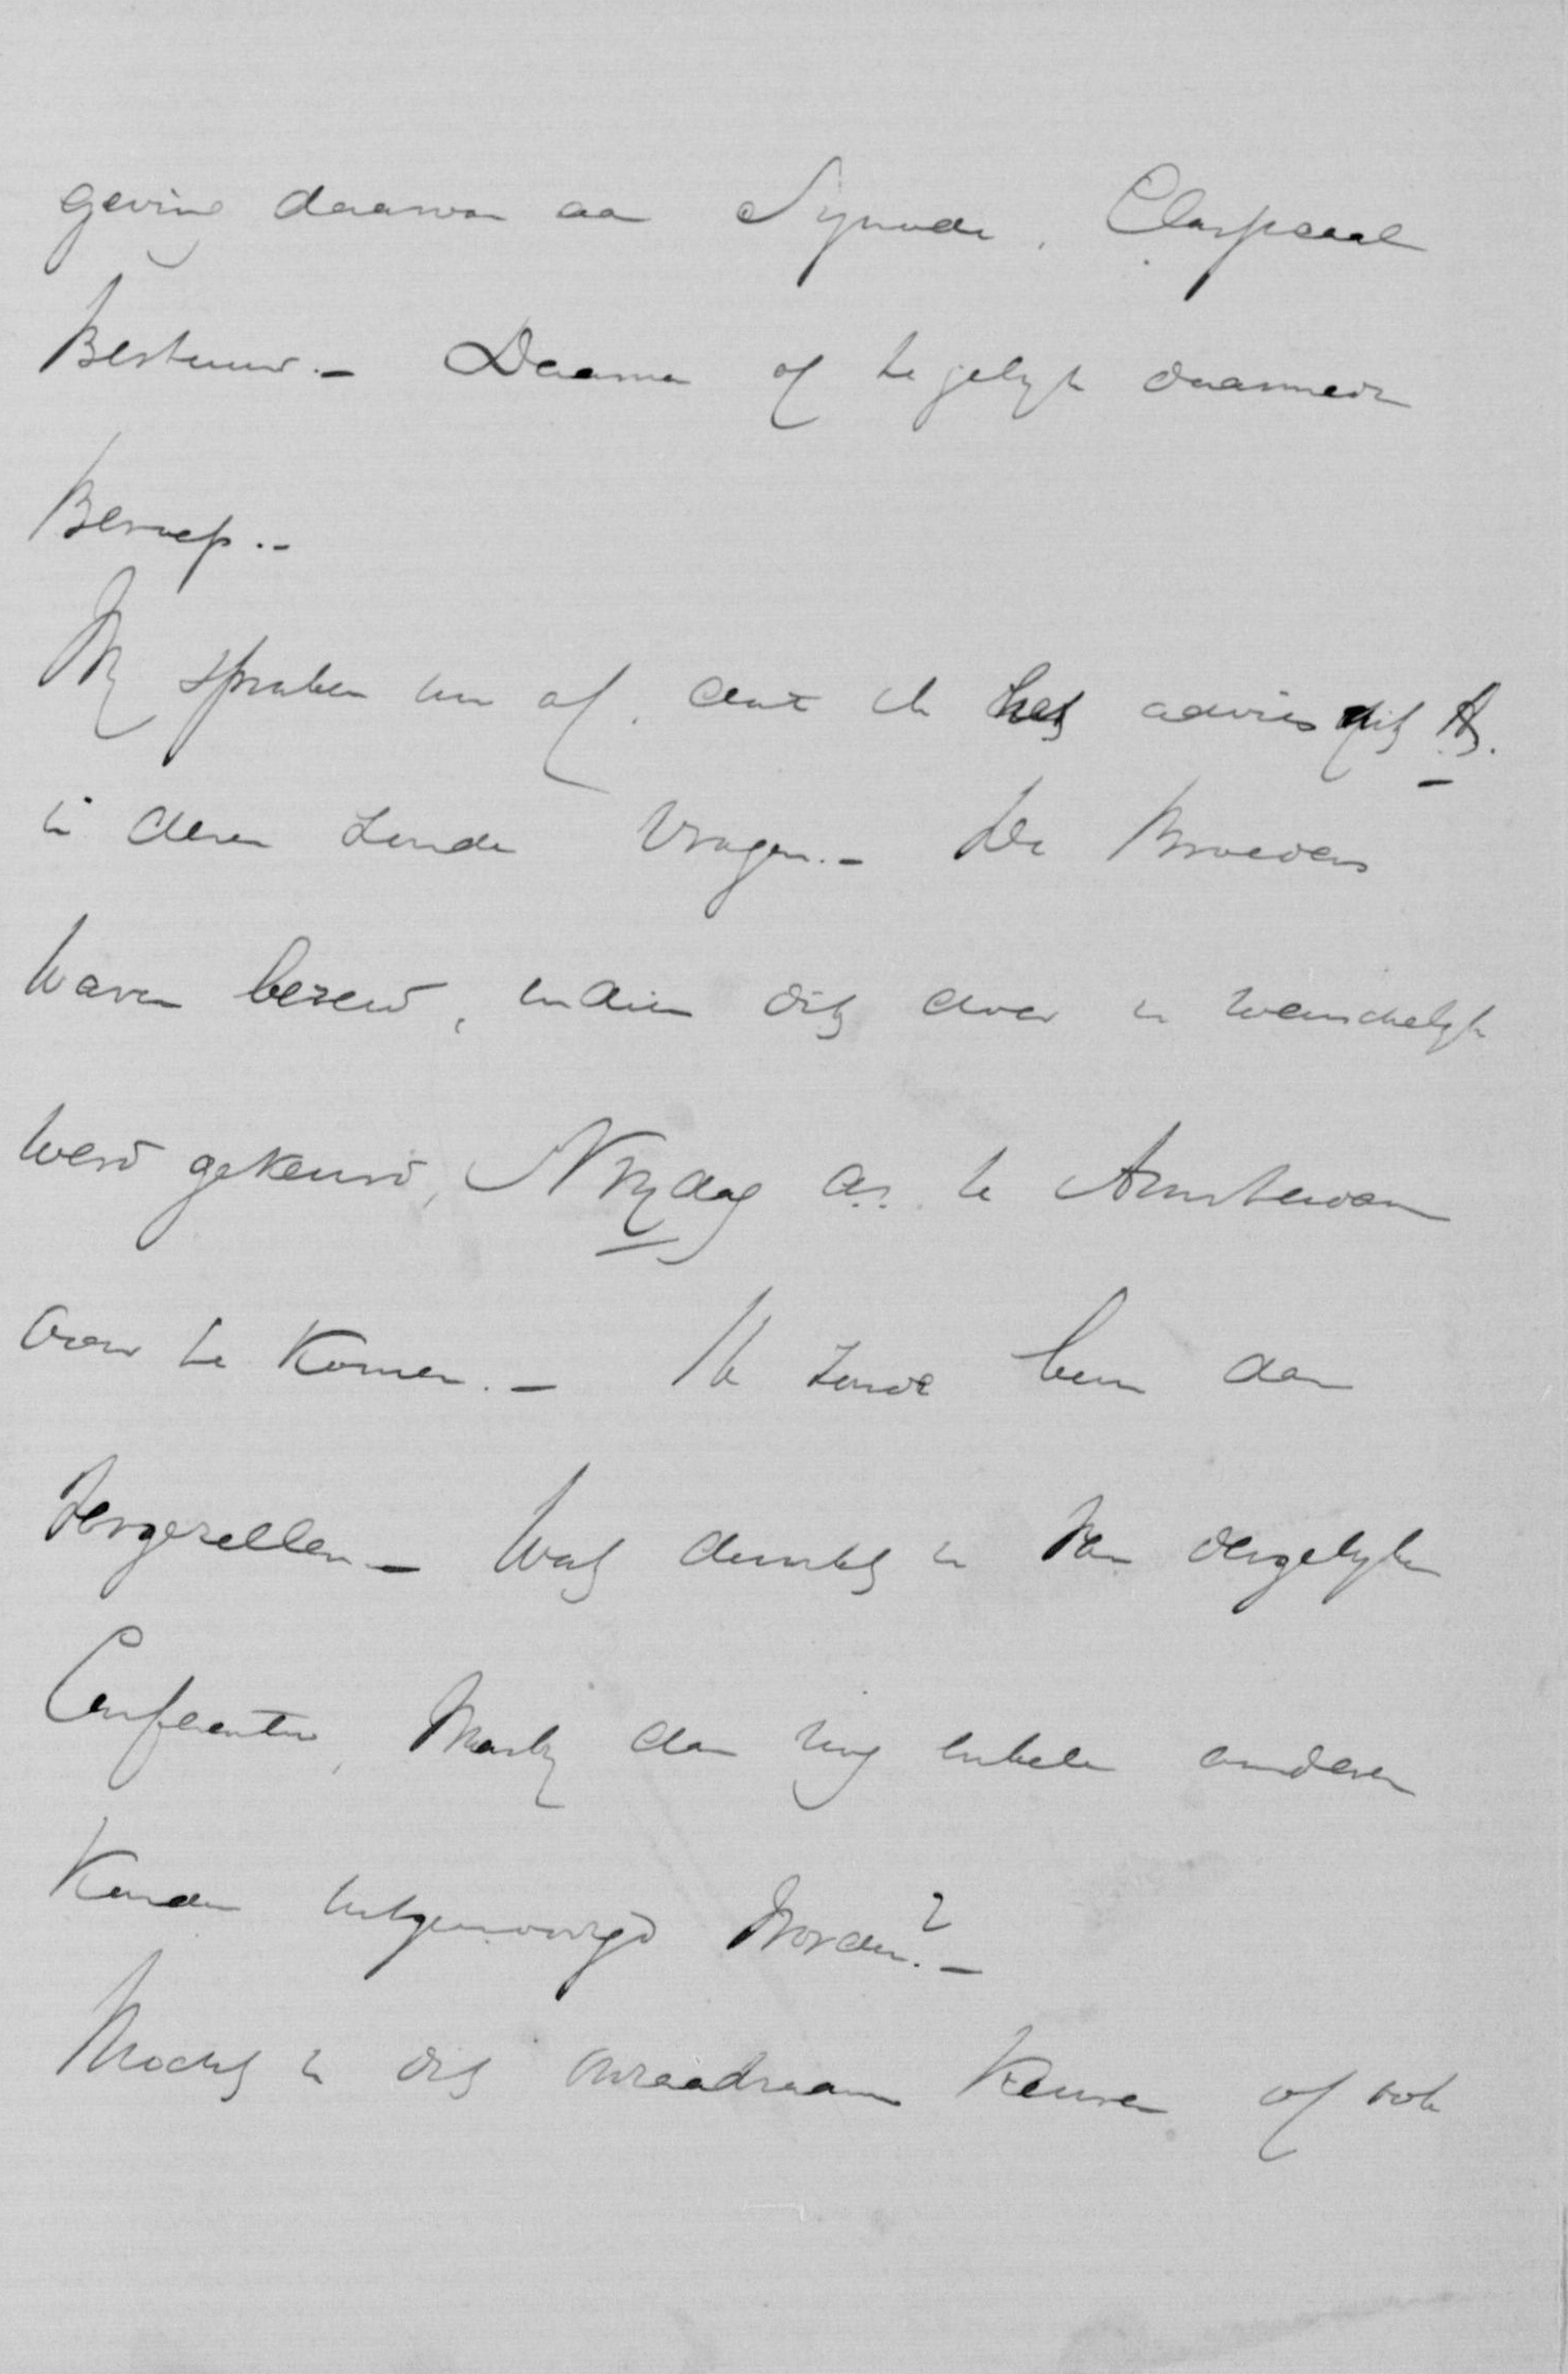 geving daarvan aan Synode, Classicaal
Bestuur. — Daarna of te gelijk daarmede
Beroep. —
Wij spraken nu af, dat ik het advies uit A.
in dezen zoude vragen. — De Broeders
waren bereid, indien dit door u wenschelijk
werd gekeurd, Vrijdag a.s. te Amsterdam
over te komen. — Ik zoude hem dan
vergezellen — Wat dunkt u van dergelijke
Conferentie, waarbij dan nog enkele anderen
konden uitgenoodigd worden? —
Mocht u dit onraadzaam keuren of ook